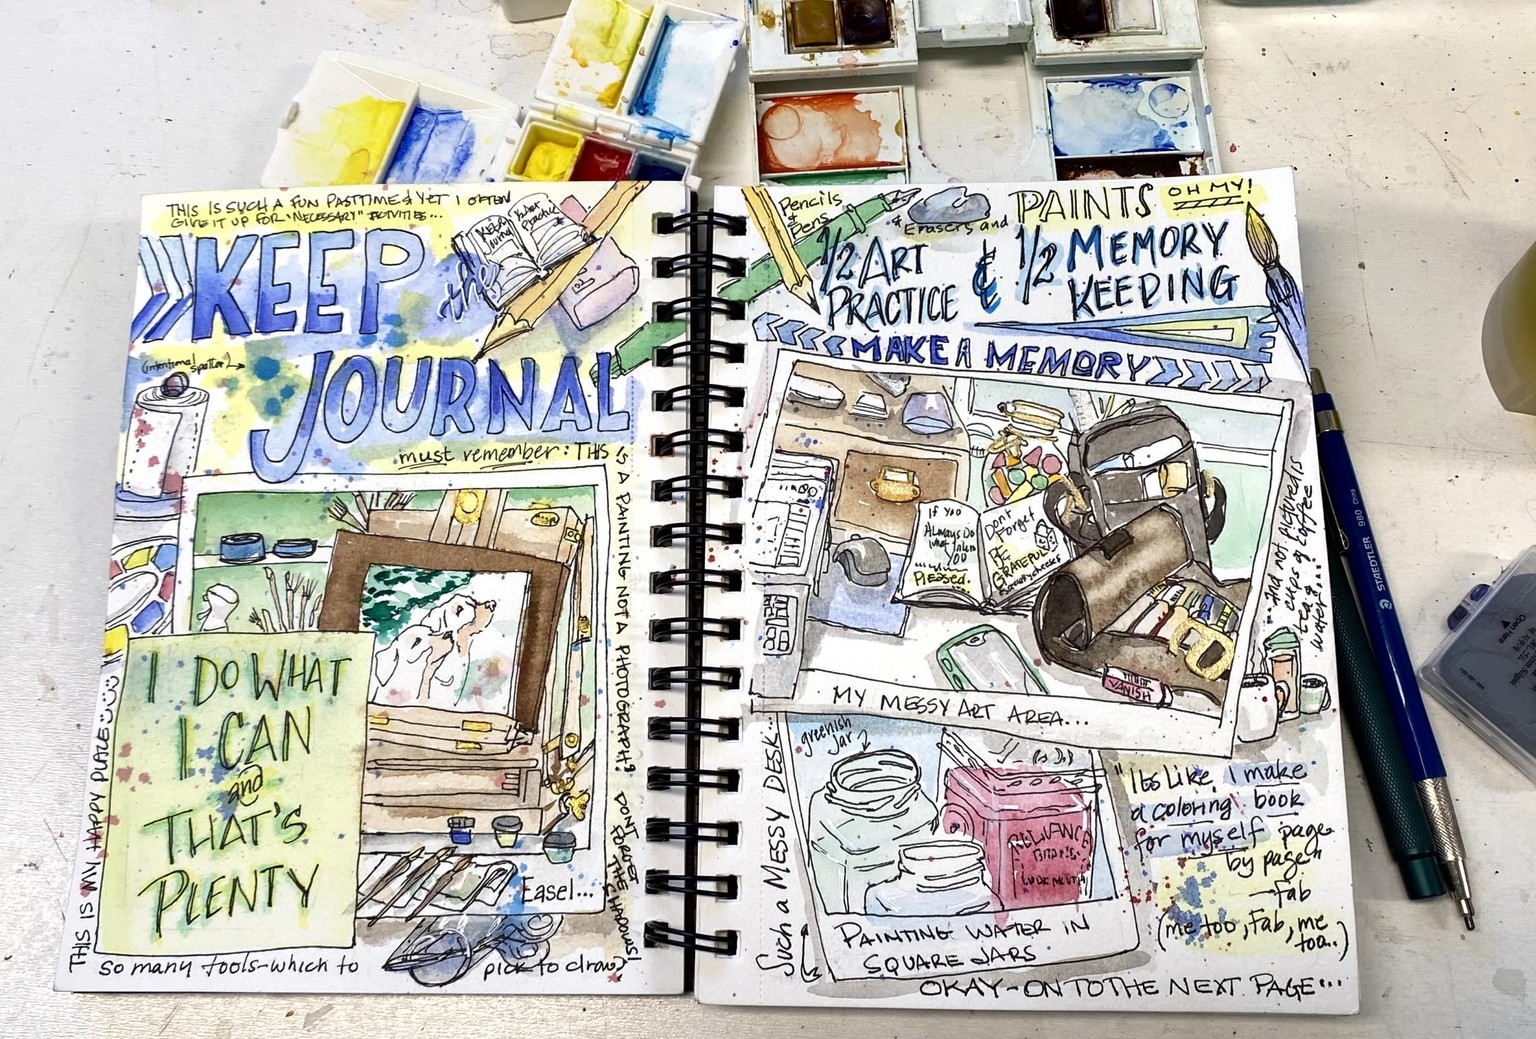 THIS IS SUCH A FUN PASTTIME & YET I OFTEN
GIVE IT UP FOR "NECESSARY" ACTIVITIES...
KEEP
the
JOURNAL
(intentional spatter)
must remember: THIS
IS A PAINTING NOT A PHOTOGRAPH!
DON'T FORGET THE SHADOWS!
I DO WHAT
I CAN
and
THAT'S
PLENTY
Easel...
THIS IS MY HAPPY PLACE
so many tools-which to
pick to draw?
Pencils
&
Pens
& Erasers and
PAINTS
OH MY!
1/2 ART
PRACTICE
&
1/2 MEMORY
KEEPING
MAKE A MEMORY
If You
Always Do
What
YOU
Pleased.
Don't
Forget
BE
GRATEFUL
VANISH
MY MESSY ART AREA...
And not pictured is
cups of coffee
tea &
water...
Such a MESSY DESK...
greenish
jar
RELIANCE
PAINTING WATER IN
SQUARE JARS
"Its like I make
a coloring book
for myself page
by page"
-Fab
(me too, Fab, me
too..)
OKAY-ON TO THE NEXT PAGE...
STAEDTLER 980 China